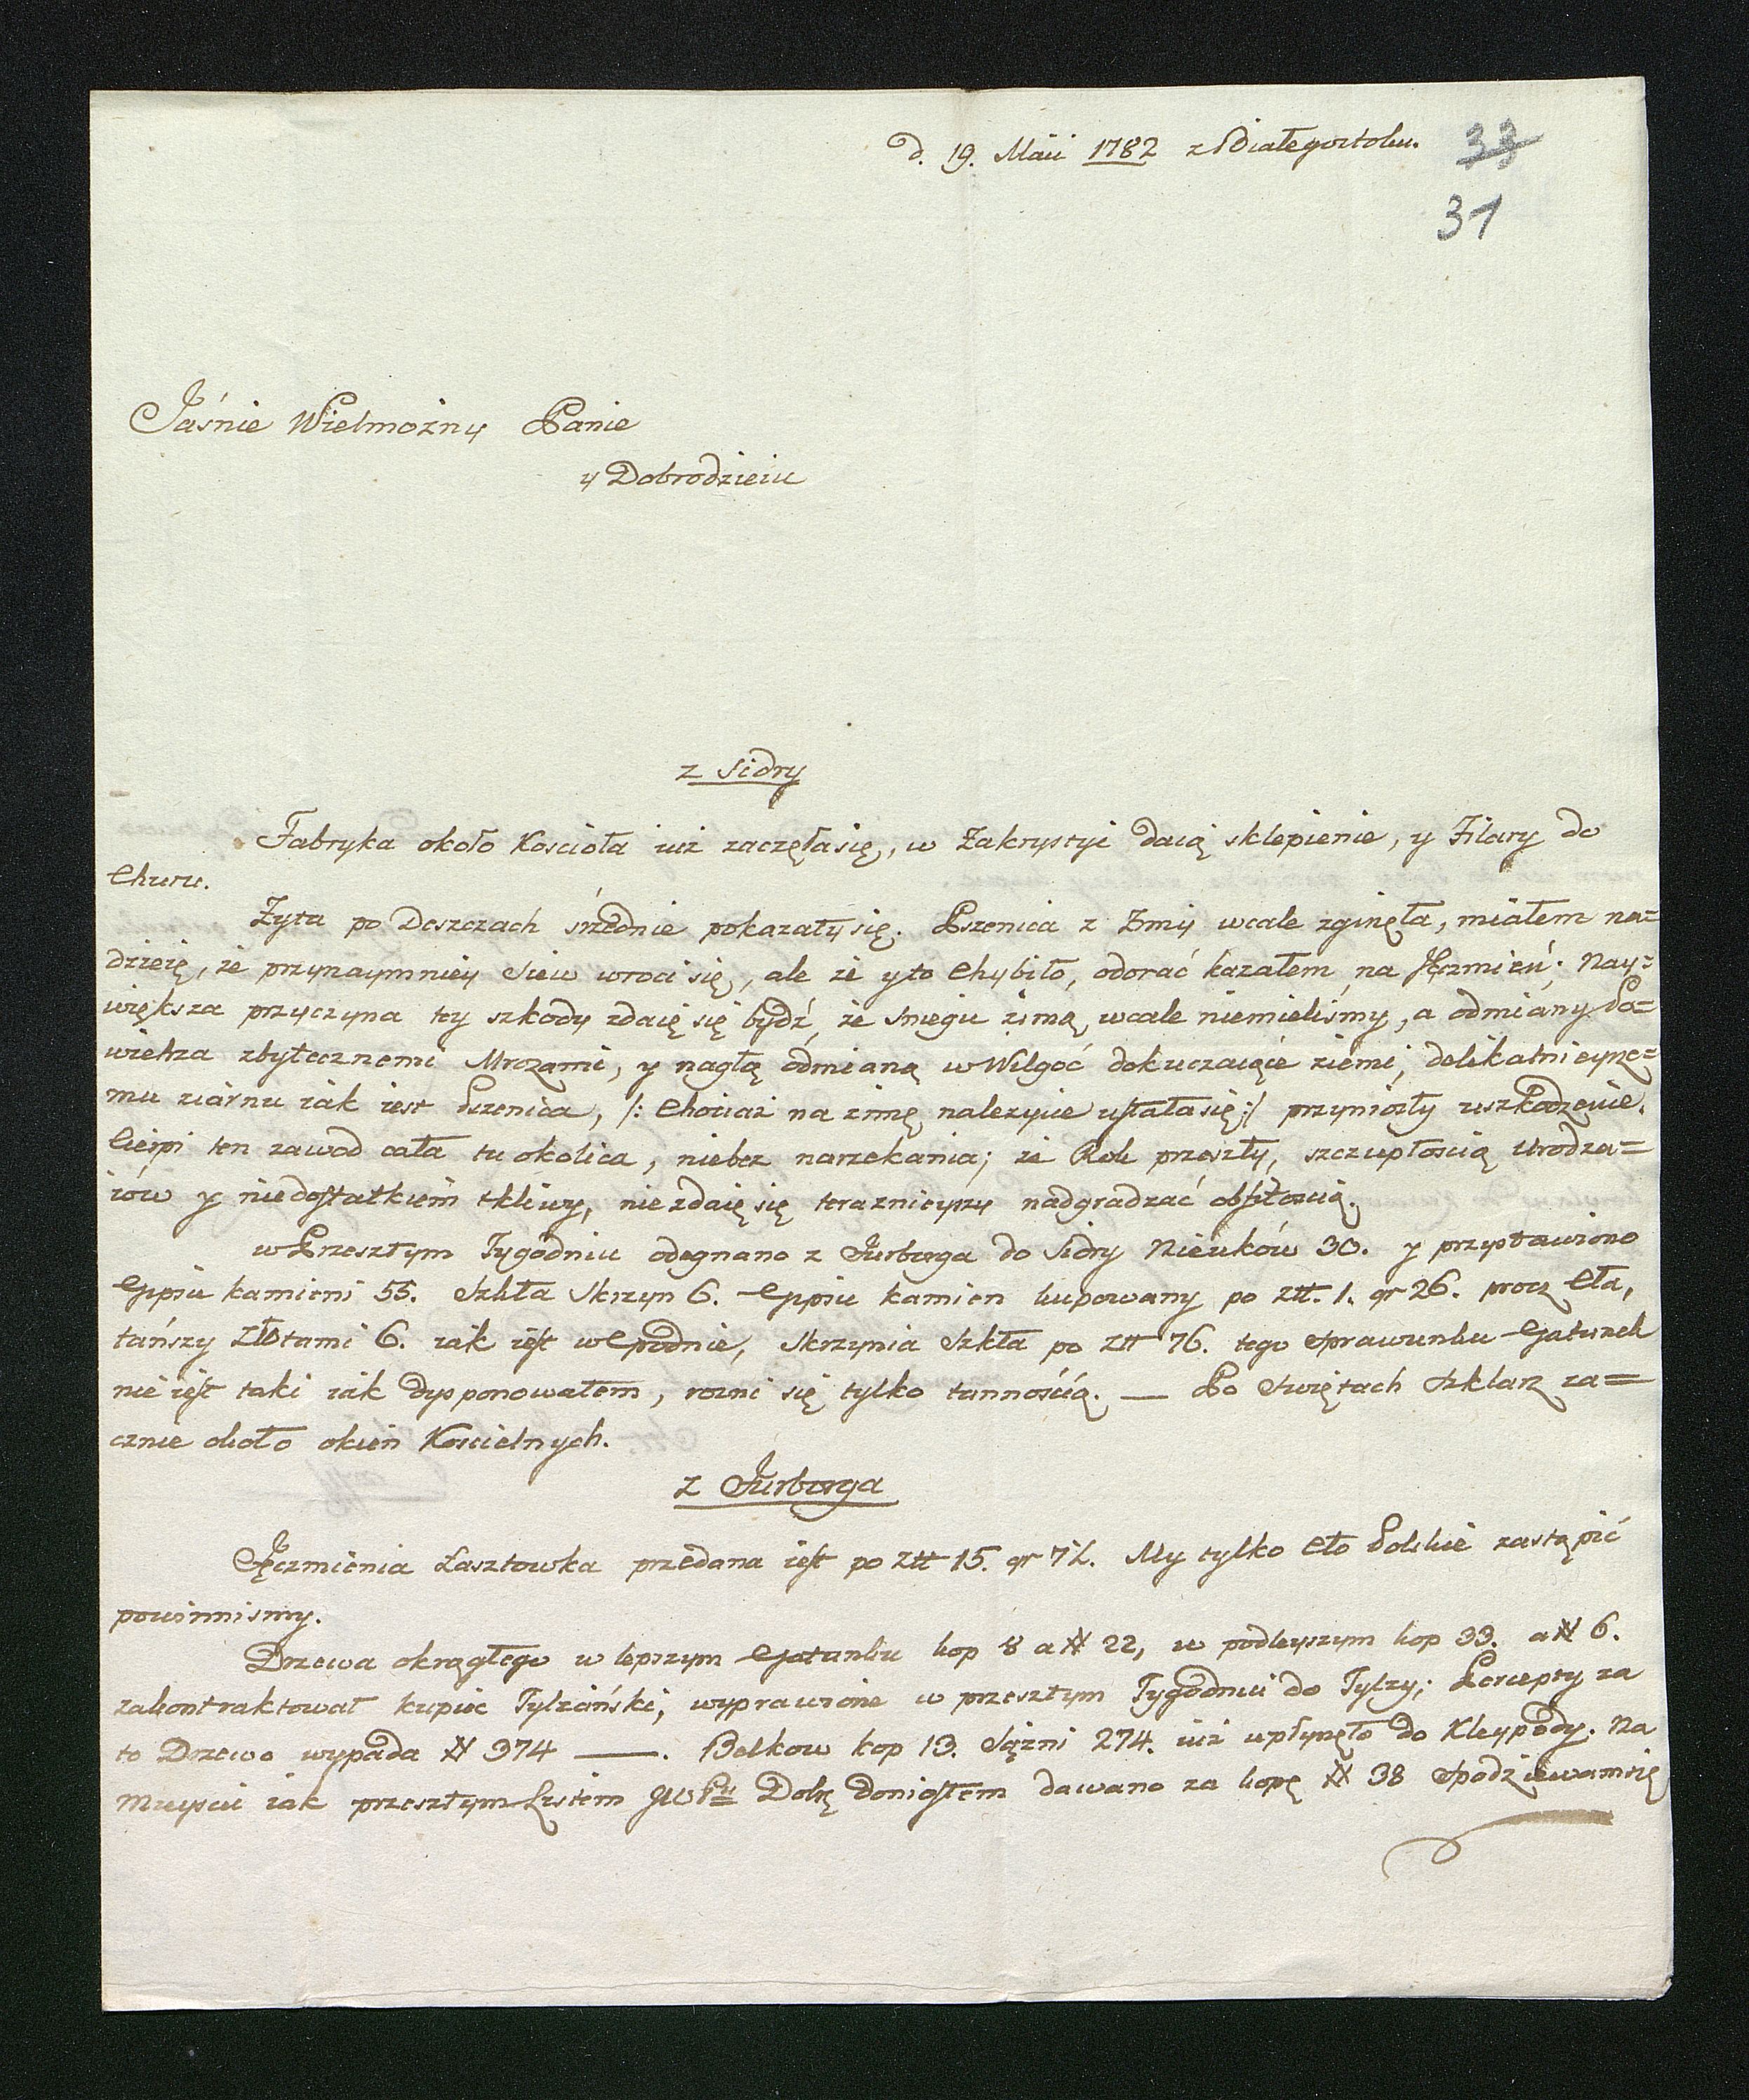 d. 19. Maii 1782 z Białegostoku.
33
31
Jaśnie Wielmożny Panie
y Dobrodzieiu
z Sidry
Fabryka około Kościoła iuż zaczęłasię, w Zakrystyi daią sklepienie, y Filary do
Churu.
Żyta po Deszczach średnie pokazałysię. Pszenica z Zimy wcale zginęła, miałem na=
dzieię, że przynaymniey Siew wroci się, ale że yto Chybiło, odorać kazałem na Jęczmień; Nay=
większa przyczyna tey szkody zdaię się bydź, że Sniegu zimą wcale niemieliśmy, a odmiany Po=
wietrza zbytecznemi Mrozami, y nagłą odmianą w Wilgoć dokuczaiące ziemi, delikatnieysze=
mu ziarnu iak iest Pszenica, /: Chociaż na zimę należycie ustałasię :/ przyniosły uszkodzenie.
Cierpi ten zawod cała tu okolica, niebez narzekania; że Rok przeszły, szczupłoscią Urodza=
iow y niedostatkiem tkliwy, niezdaię się teraznieyszy nadgradzać obfitoscią.
w Przeszłym Tygodniu odegnano z Jurborga do Sidry Nieuków 30. y przystawiono
Gypsu kamieni 55. Szkła Skrzyn 6. Gypsu kamien kupowany po Ztt. 1. gr 26. procz Cła,
tańszy Złotemi 6. iak iest w Grodnie, Skrzynia Szkła po Ztt 76. tego Sprawunku Gatunek
nie iest taki iak dysponowałem, rozni się tylko tannością. — Po Swiętach Szklarz za=
cznie około okien Koscielnych.
z Jurborga
Jęczmienia Łasztowka przedana iest po Ztt 15. gr 7½. My tylko Cło Polskie zastąpić
powinnismy.
Drzewa okrągłego w lepszym Gatunku kop 8 a # 22, w podleyszym kop 33. a # 6.
zakontraktował kupiec Tylżański, wyprawione w przeszłym Tygodniu do Tylzy; Percepty za
to Drzewo wypada # 374 —. Belkow kop 13. Sążni 274. iuż upłynęło do Kleypedy. Na
Mieyscu iak przeszłym Listem JWPu Dobr doniosłem dawano za kopę # 38 Spodziewamsię